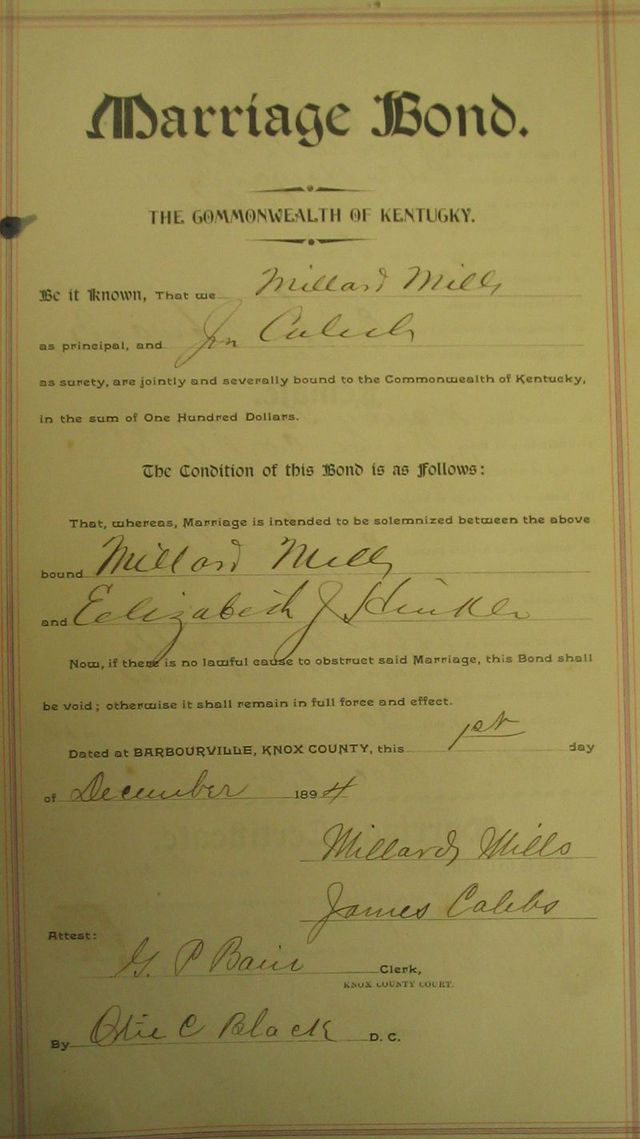 Marriage Bond.
THE COMMONWEALTH OF KENTUCKY.
Be it known, That we Millard Mills
as principal, and Jas
as surety, are jointly and severally bound to the Commonwealth of Kentucky,
in the sum of One Hundred Dollars.
The Condition of this Bond is as Follows:
That, whereas, Marriage is intended to be solemnized between the above
bound Millard Mills
and Elizabeth J Hinkle
Now, if there is no lawful cause to obstruct said Marriage, this Bond shall
be void; otherwise it shall remain in full force and effect.
Dated at BARBOURVILLE, KNOX COUNTY, this 1st day
of December 1894
Millard Mills
James Calebs
Attest:
G. P Bain Clerk,
KNOX COUNTY COURT.
By C Black D. C.